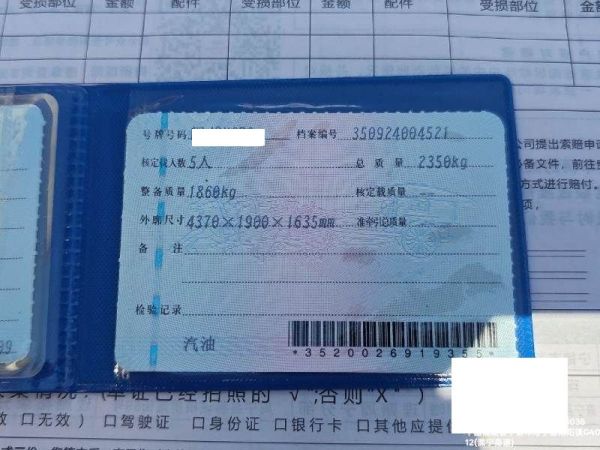 受损部位 金额 配件 受损部位 金额 配件 受损部位 金额
号牌号码 档案编号 350924004521
核定载人数 5人 总质量 2350kg
整备质量 1860kg 核定载质量 --
外廓尺寸 4370×1900×1635mm 准牵引总质量 --
备注
检验记录
汽油
*3520026919355*
公司提出索赔申请
必备文件，前往
方式进行赔付。
(单证已经拍照的"√";否则"X")
口无效) 口驾驶证 口身份证 口银行卡 口其他应提